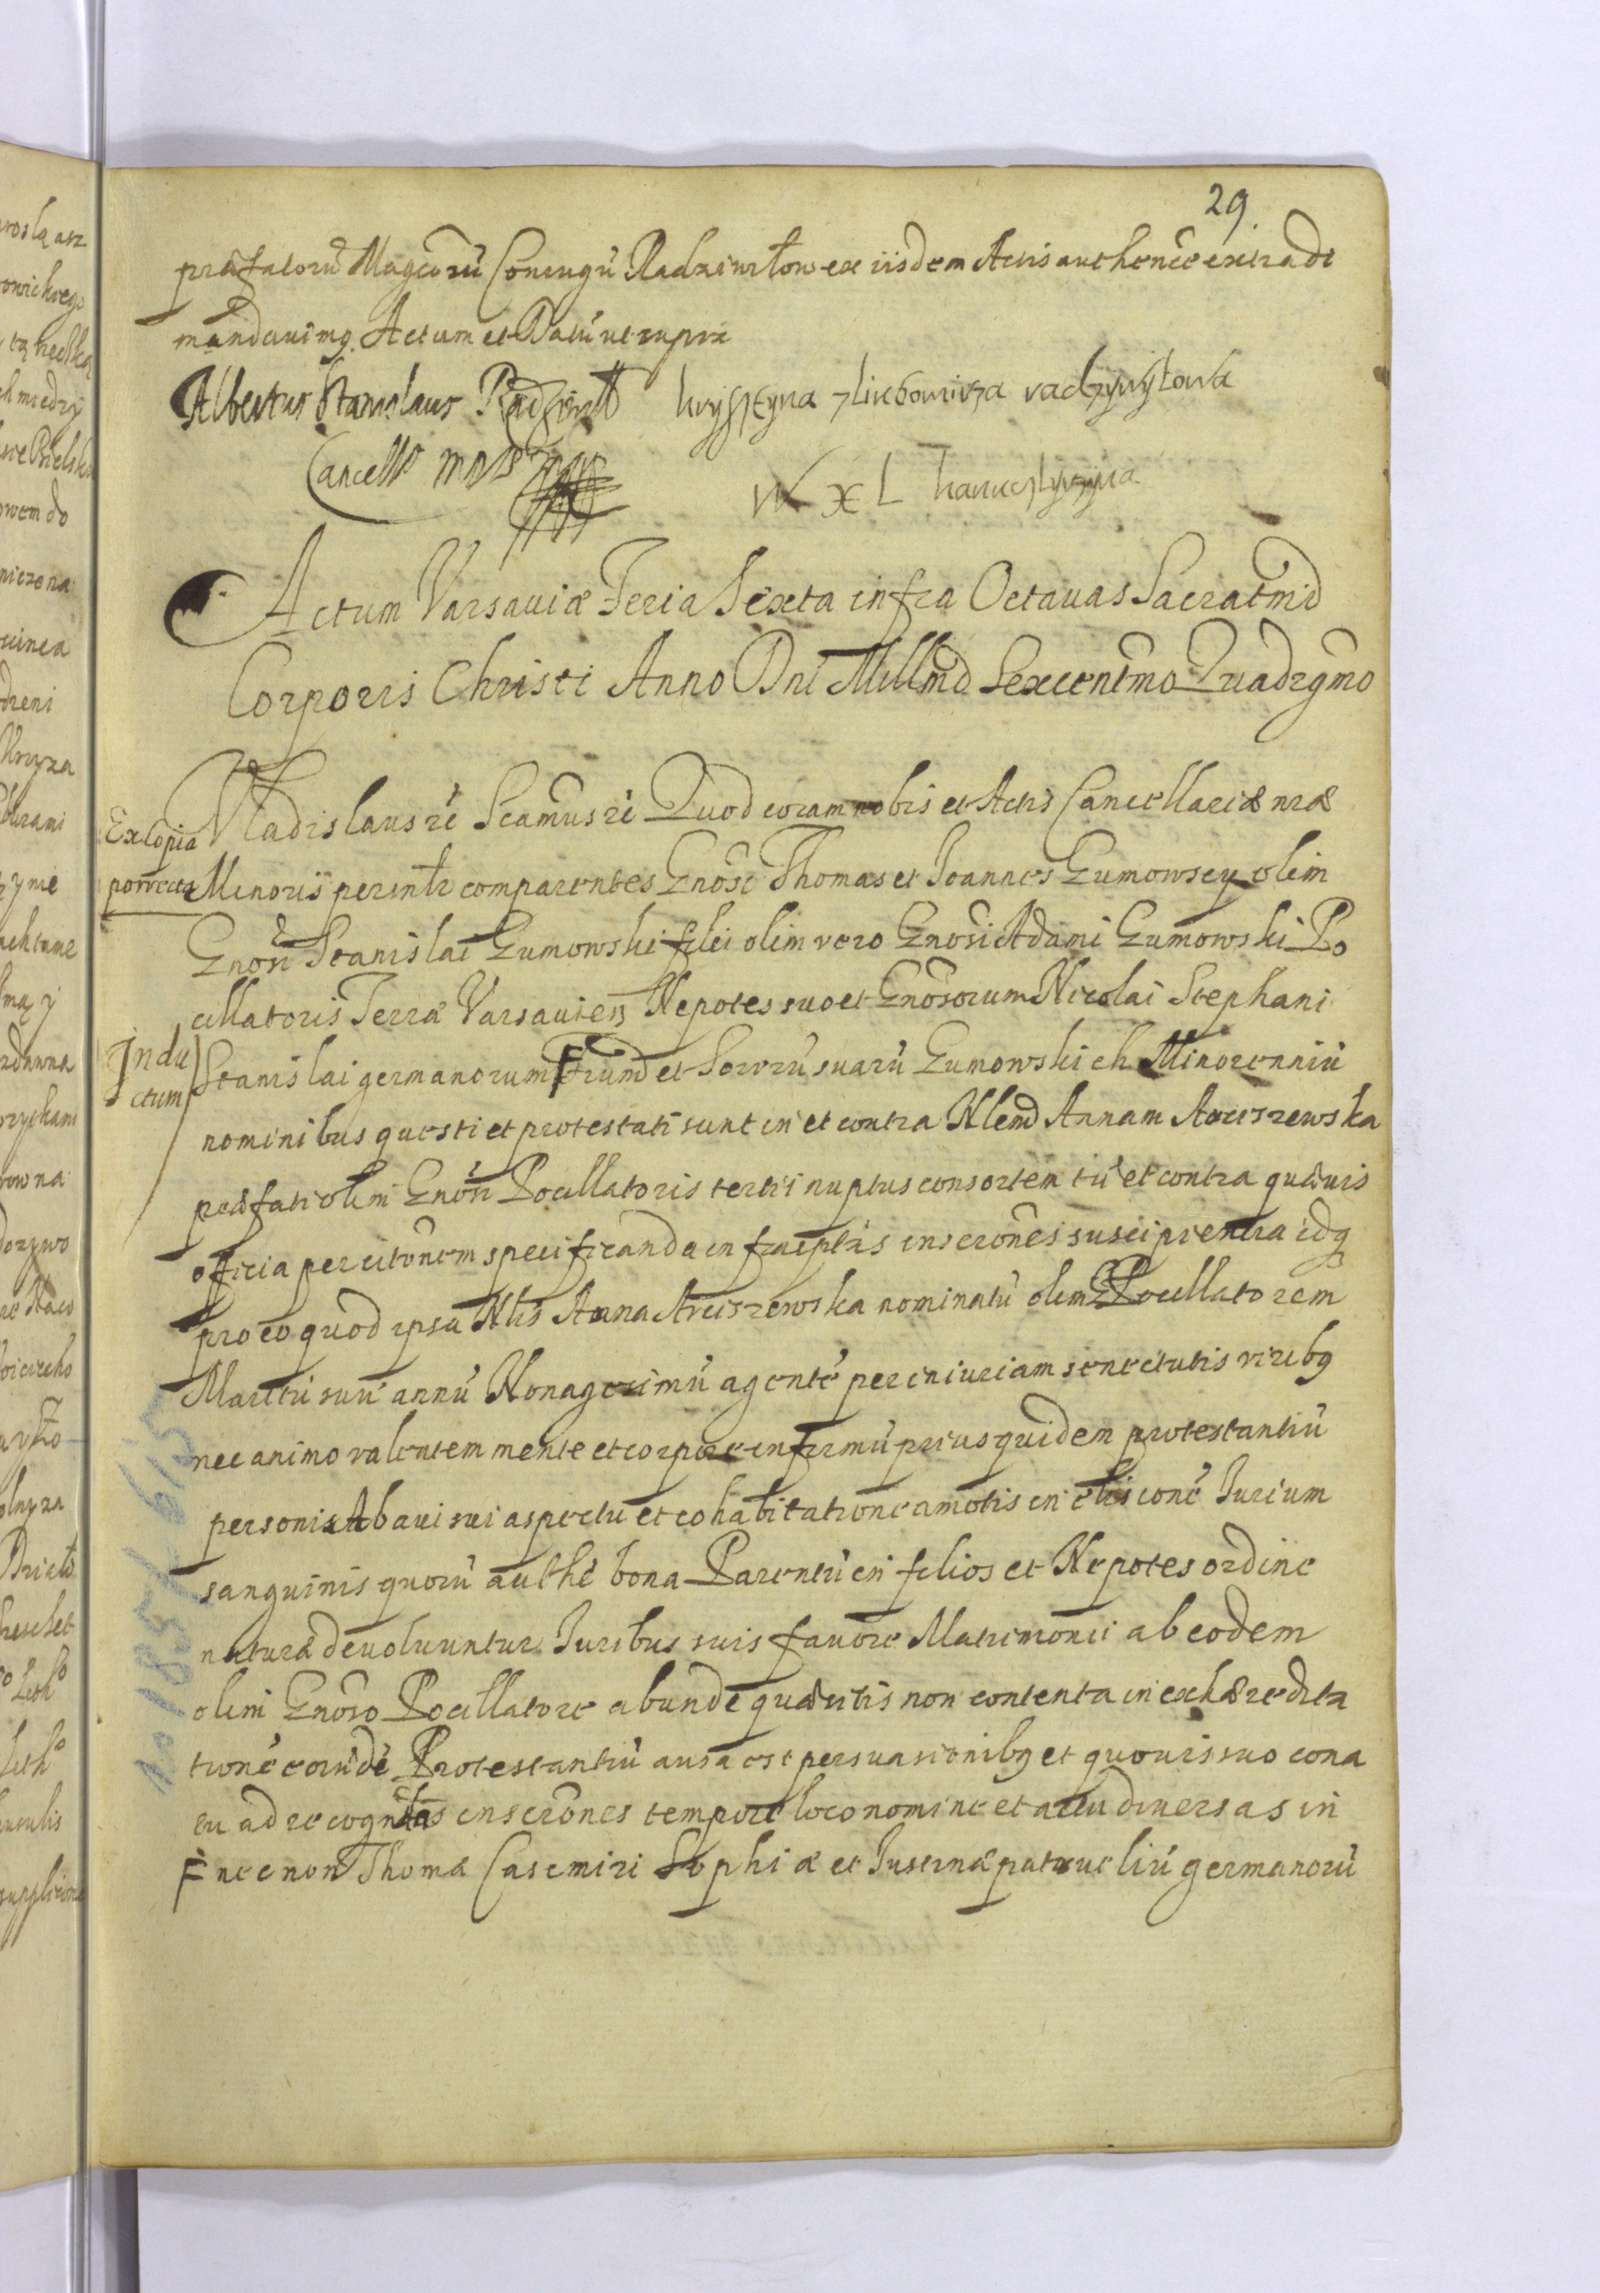 29.
præfatorũ Magcorũ Coniugũ Radziwiłow ex iisdem Actis authence extradi
mandauimq. Actum et Datũ ut supra
Albertus Stanislaus Radziwił krystyna z liubomirza radzywyłowa
Cancells MDL W X L kancleżyna
Actum Varsauiæ Feria Sexta infra Octauas Sacratmi
Corporis Christi Anno Dni Millmo Sexcentmo Quadrgmo
Ex Copia
porrecta
Vladislaus rc Scamus rc Quod coram nobis et Actis Cancellariæ nræ
Minoris persntr comparentes Gnosi Thomas et Joannes Gumowscy olim
Gnosi Stanislai Gumowski filii olim vero Gnosi Adami Gumowski Po
cillatoris Terræ Varsauien Nepotes suo et Gnosorum Nicolai Stephani
Indu
ctum
Stanislai germanorum F Frum et Sororũ suarũ Gumowskich Minorenniũ
nominibus questi et protestati sunt in et contra Nlem Annam Arciszewska
præfati olim Gnosi Pocillatoris tertii nuptus consortem tũ et contra quæuis
officia per citonem specificanda infrascptas inscrones suscipientia idq
pro eo quod ipsa Nlis Anna Arciszewska nominatũ olim G Pocillatorem
Maritũ suũ annũ Nonagesimũ agentẽ per iniuriam senectutis viribq
nec animo valentem mente et corpore infirmũ prius quidem protestantiũ
personis Abaui sui aspectu et cohabitatione amotis in elisionẽ Jurium
sanguinis quorũ authẽ bona Parentũ in filios et Nepotes ordine
naturæ deuoluuntur Juribus suis fauore Matrimonii ab eodem
olim Gnoso Pocillatore abunde quæsitis non contenta in exhæredita
tionẽ eorũdẽ Protestantiũ ausa est persuasionibq et quouis suo cona
tu ad recognitas inscrones tempore loco nomine et actu diuersas in
F necnon Thomæ Casimiri Sophiæ et Justinæ patrueliũ germanorũ